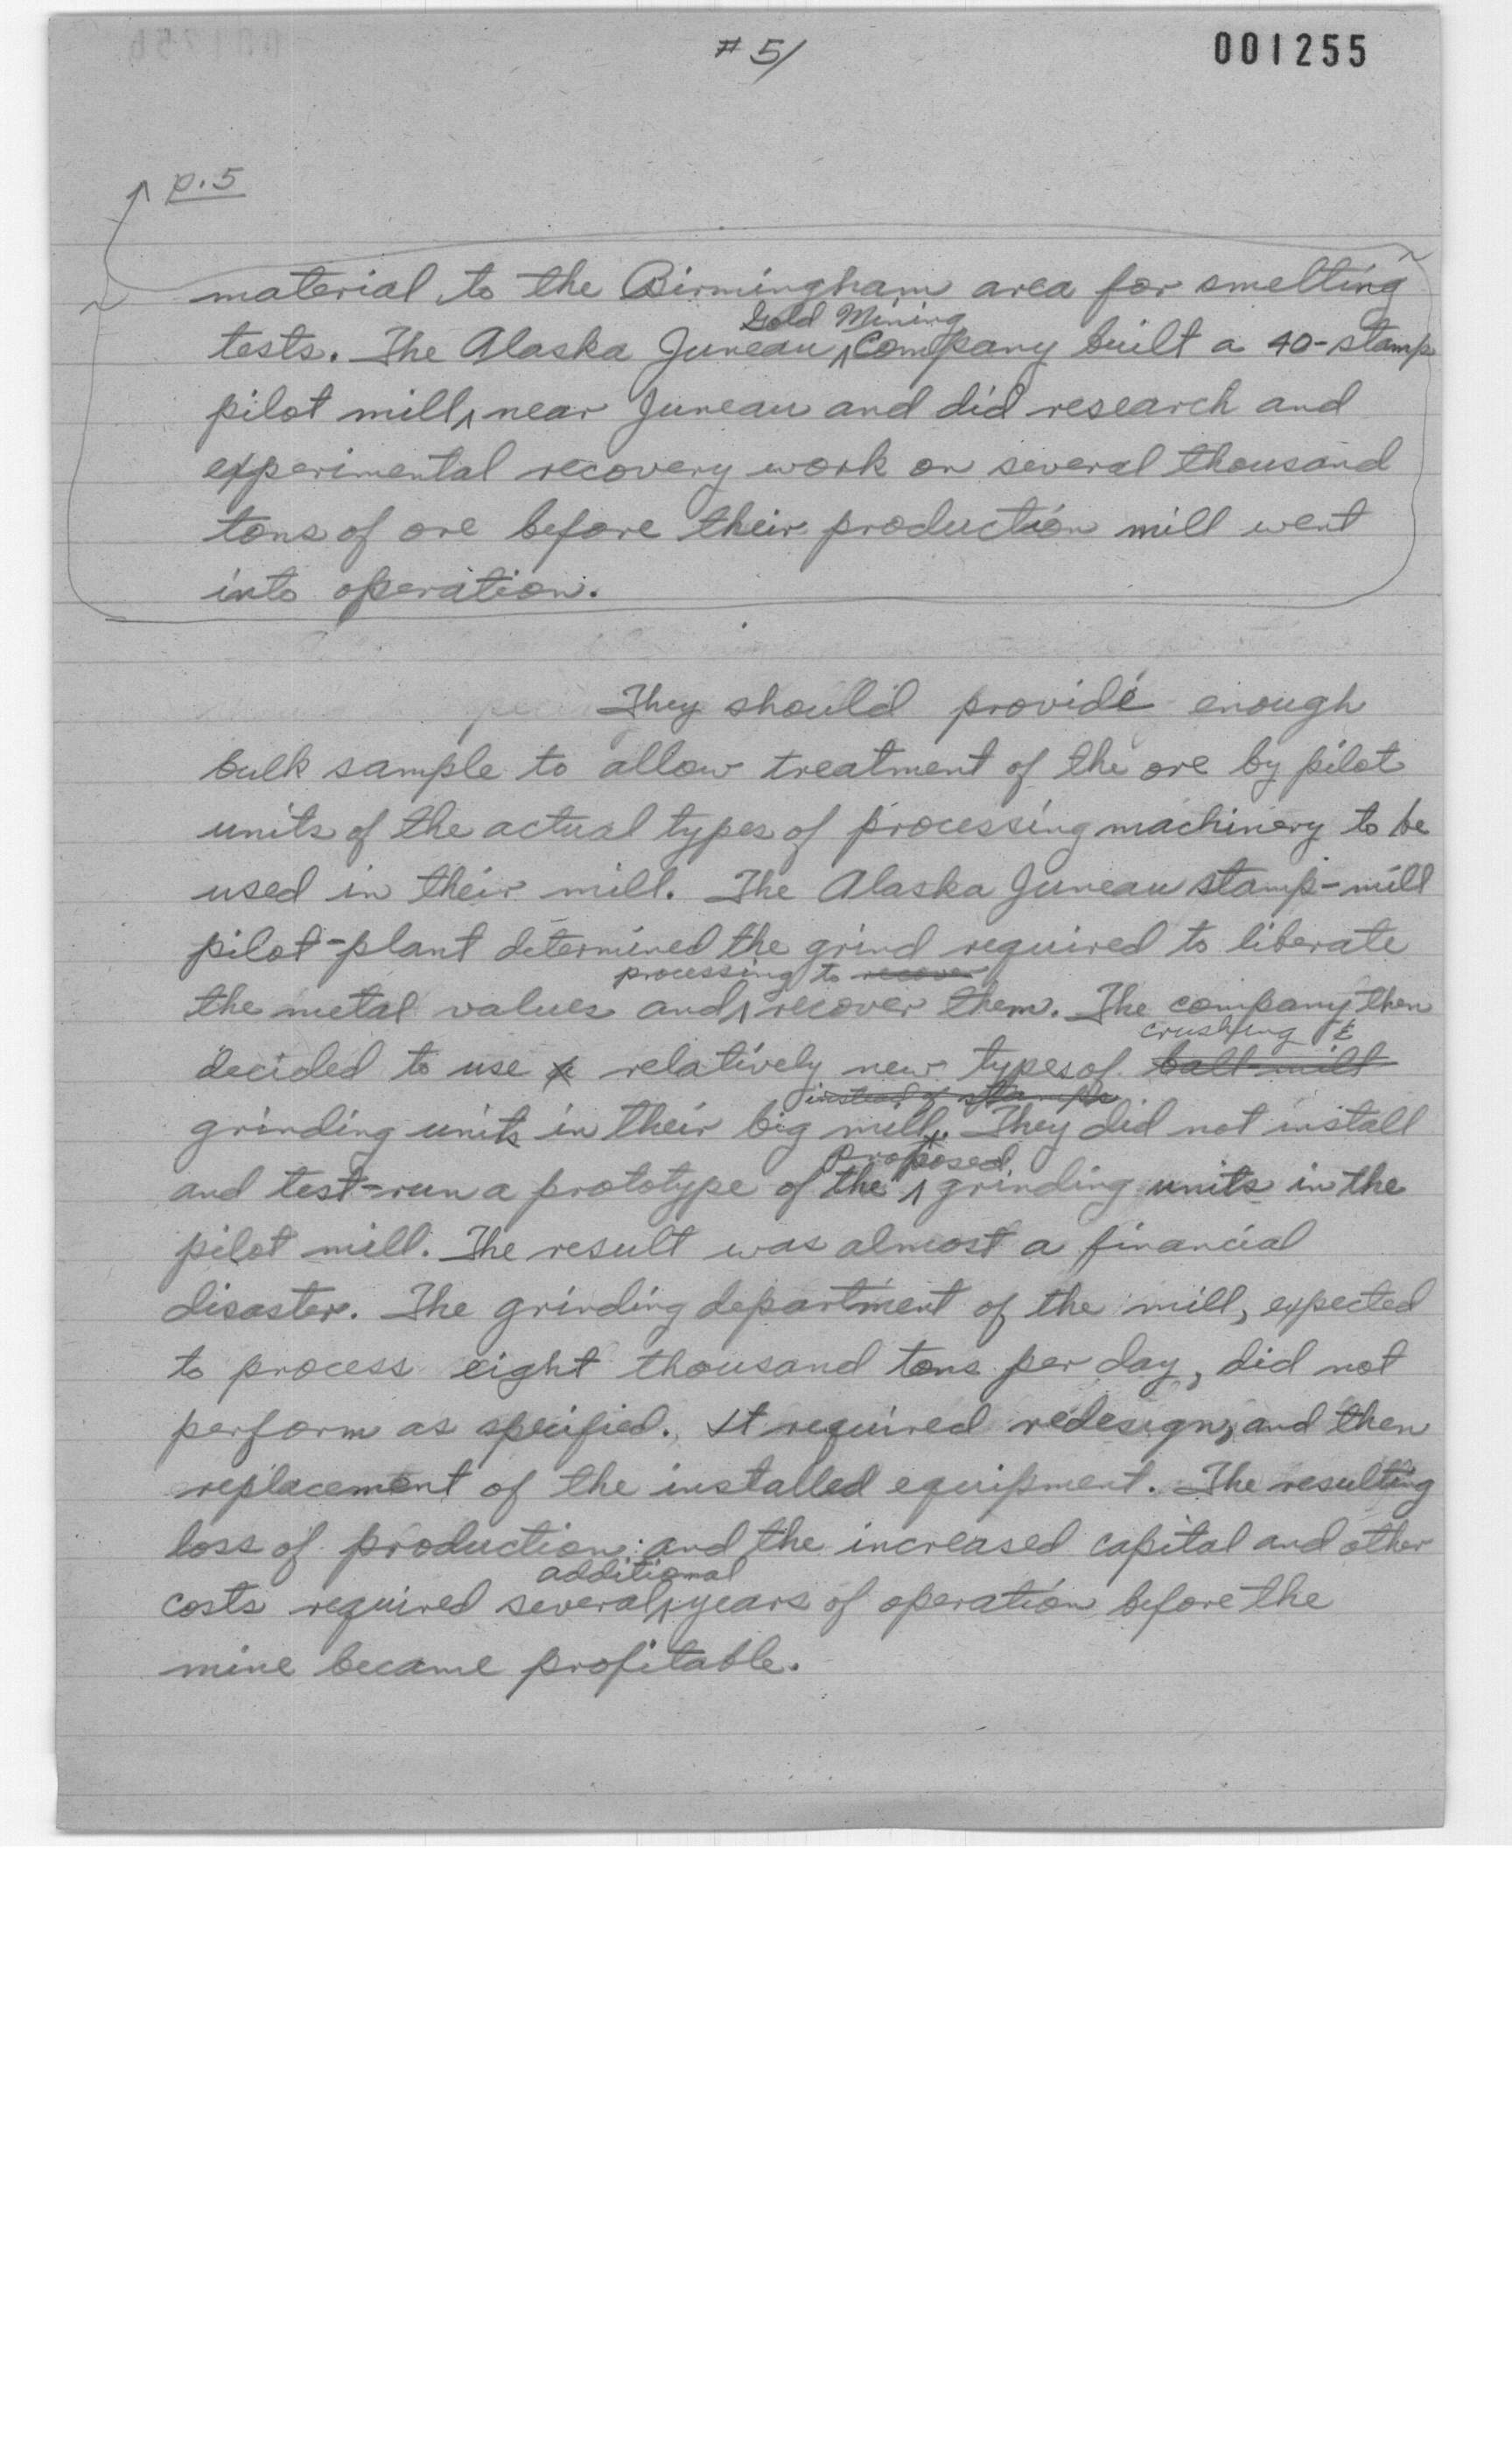 # 5/
001255
p.5
material to the Birmingham area for smelting
Gold Mining
tests. The Alaska Juneau ^ Company built a 40-stamp
pilot mill ^ near Juneau and did research and
experimental recovery work on several thousand
tons of ore before their production mill went
into operation.
They should provide enough
bulk sample to allow treatment of the ore by pilot
units of the actual types of processing machinery to be
used in their mill. The Alaska Juneau stamp-mill
pilot-plant determined the grind required to liberate
processing to recover
the metal values and ^ recover them. The company then
crushing &
decided to use a relatively new types of ball-mill
instead of stamps
grinding units in their big mill. They did not install
proposed
and test-run a prototype of the ^ grinding units in the
pilot mill. The result was almost a financial
disaster. The grinding department of the mill, expected
to process eight thousand tons per day, did not
perform as specified. It required redesign, and then
replacement of the installed equipment. The resulting
loss of production and the increased capital and other
additional
costs required several ^ years of operation before the
mine became profitable.